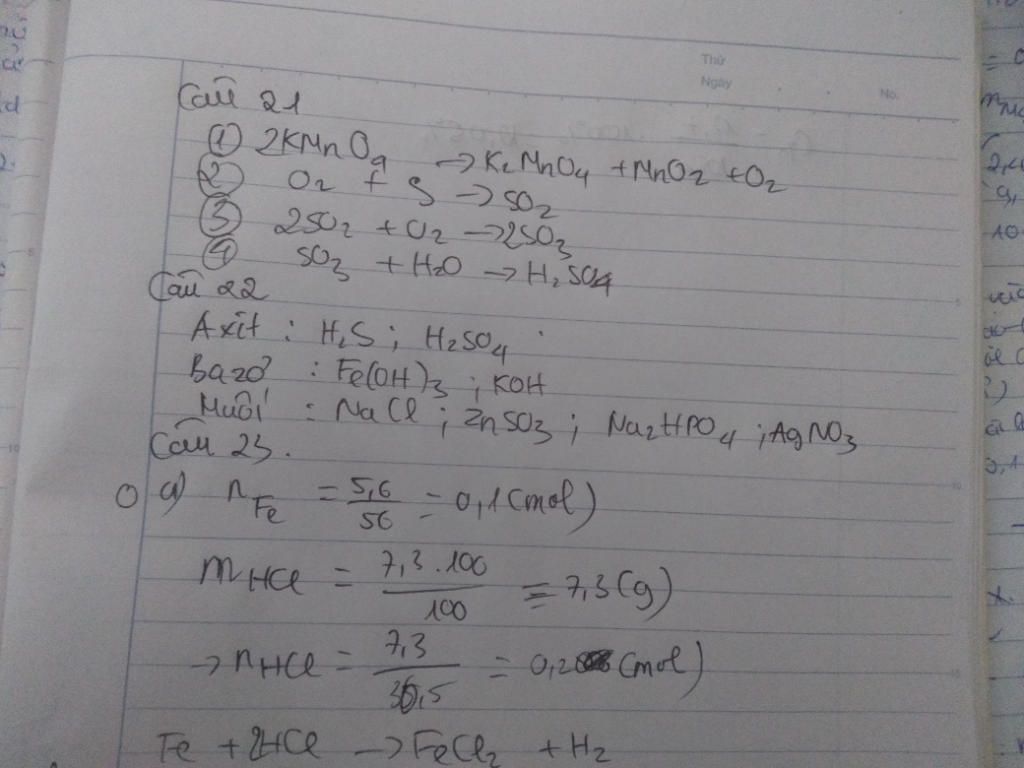 Thứ
Ngày
No.
Câu 21
① 2KMnO4 → K2MnO4 + MnO2 + O2
② O2 + S → SO2
③ 2SO2 + O2 → 2SO3
④ SO3 + H2O → H2SO4
Câu 22
Axit : H2S ; H2SO4
Bazơ : Fe(OH)3 ; KOH
Muối : NaCl ; ZnSO3 ; Na2HPO4 ; AgNO3
Câu 23.
a) nFe = 5,6/56 = 0,1 (mol)
mHCl = 7,3.100/100 = 7,3 (g)
→ nHCl = 7,3/36,5 = 0,2 (mol)
Fe + 2HCl → FeCl2 + H2